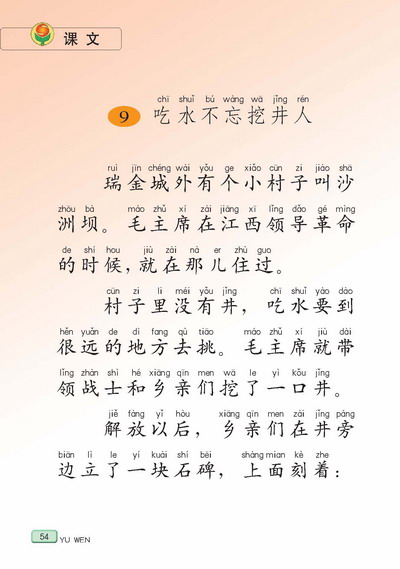 课文
chī shuǐ bú wàng wā jǐng rén
9 吃水不忘挖井人
ruì jīn chéng wài yǒu ge xiǎo cūn zi jiào shā
瑞金城外有个小村子叫沙
zhōu bà máo zhǔ xí zài jiāng xī lǐng dǎo gé mìng
洲坝。毛主席在江西领导革命
de shí hou jiù zài nà er zhù guo
的时候，就在那儿住过。
cūn zi li méi yǒu jǐng chī shuǐ yào dào
村子里没有井，吃水要到
hěn yuǎn de dì fang qù tiāo máo zhǔ xí jiù dài
很远的地方去挑。毛主席就带
lǐng zhàn shì hé xiāng qīn men wā le yì kǒu jǐng
领战士和乡亲们挖了一口井。
jiě fàng yǐ hòu xiāng qīn men zài jǐng páng
解放以后，乡亲们在井旁
biān lì le yí kuài shí bēi shàng mian kè zhe
边立了一块石碑，上面刻着：
54 YU WEN